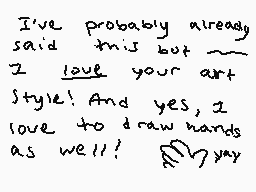 I've probably already
said this but ~
I love your art
style! And yes, I
love to draw hands
as well! yay